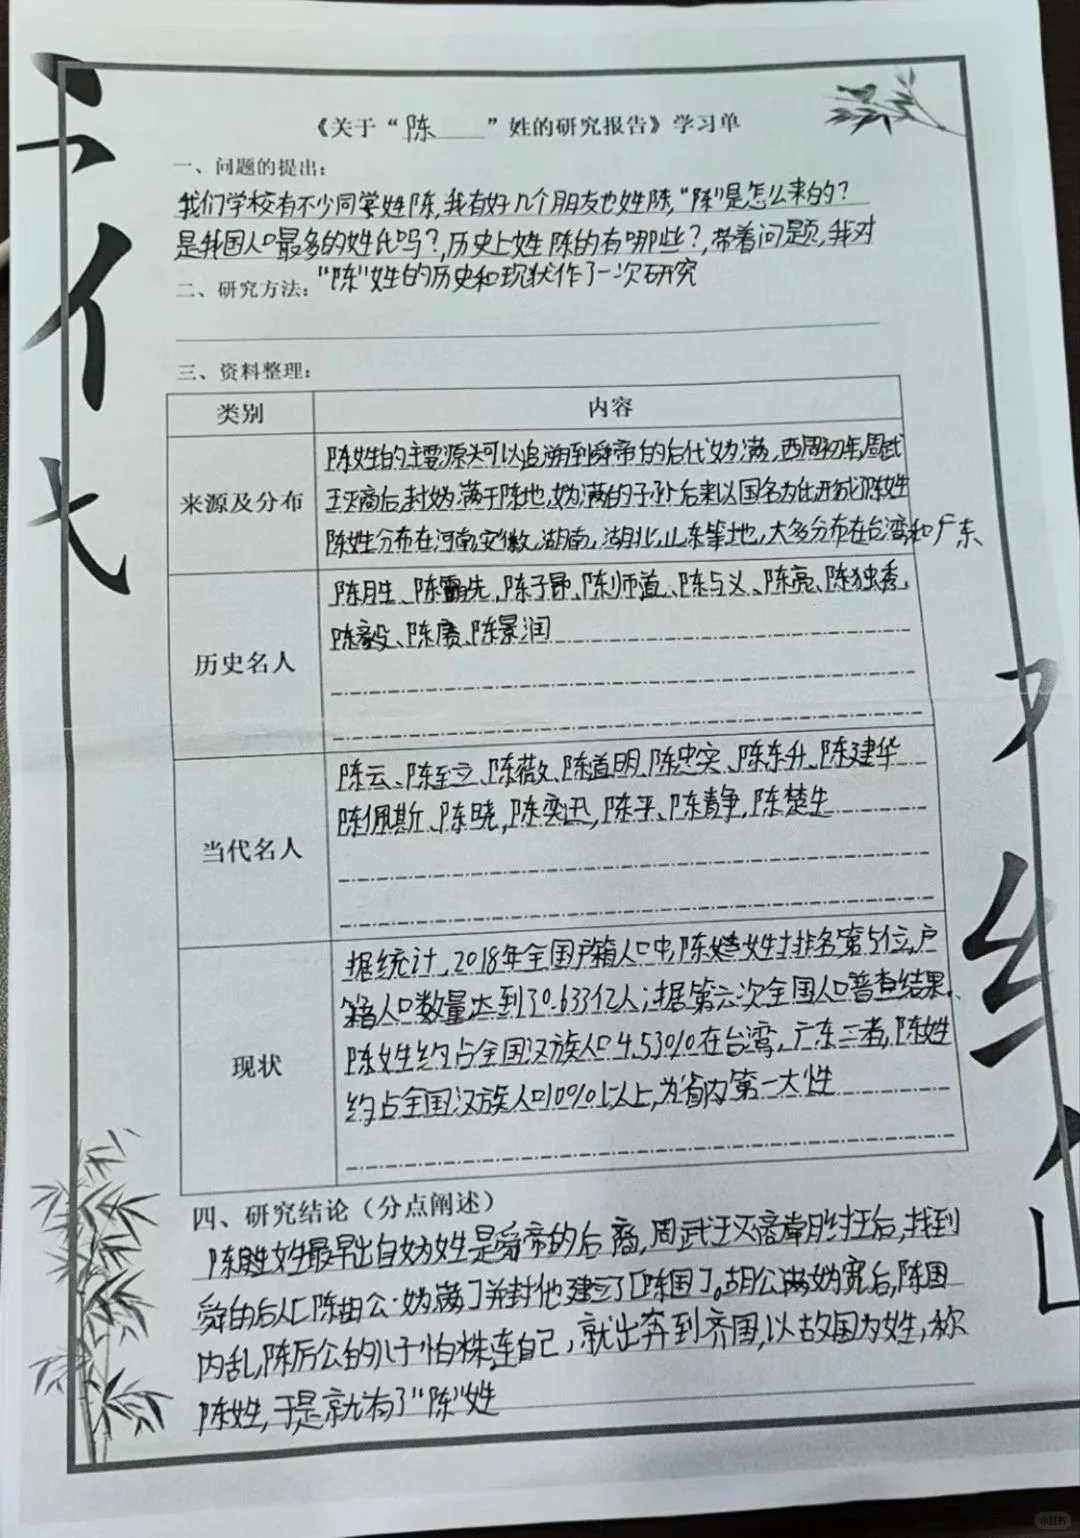 《关于“陈”姓的研究报告》学习单
一、问题的提出：
我们学校有不少同学姓陈,我有好几个朋友也姓陈,“陈”是怎么来的?
是我国人口最多的姓氏吗?,历史上姓陈的有哪些?,带着问题,我对
“陈”姓的历史和现状作了一次研究
二、研究方法：
三、资料整理：
类别 内容
来源及分布
陈姓的主要源头可以追溯到舜帝的后代妫满,西周初年,周武
王灭商后,封妫满于陈地,妫满的子孙后来以国名为氏,形成了陈姓
陈姓分布在河南,安徽,湖南,湖北,山东等地,大多分布在台湾和广东、
历史名人
陈胜、陈霸先、陈子昂、陈师道、陈与义、陈亮、陈独秀,
陈毅、陈赓、陈景润
当代名人
陈云、陈至立、陈薇、陈道明、陈忠实、陈东升、陈建华
陈佩斯、陈晓,陈奕迅,陈平、陈静,陈楚生
现状
据统计,2018年全国户籍人口中,陈姓排名第5位,户
籍人口数量达到了0.633亿人;据第六次全国人口普查结果,
陈姓约占全国汉族人口4.53%在台湾,广东二者,陈姓
约占全国汉族人口10%以上,为省内第一大姓
四、研究结论（分点阐述）
陈姓最早出自妫姓是舜帝的后裔,周武王灭商纣王后,找到
舜的后人[陈胡公·妫满]并封他建立了[陈国]。胡公满妫宽后,陈国
内乱,陈厉公的儿子怕株连自己,就出奔到齐国,以故国为姓,称
陈姓,于是就有了“陈”姓
小红书